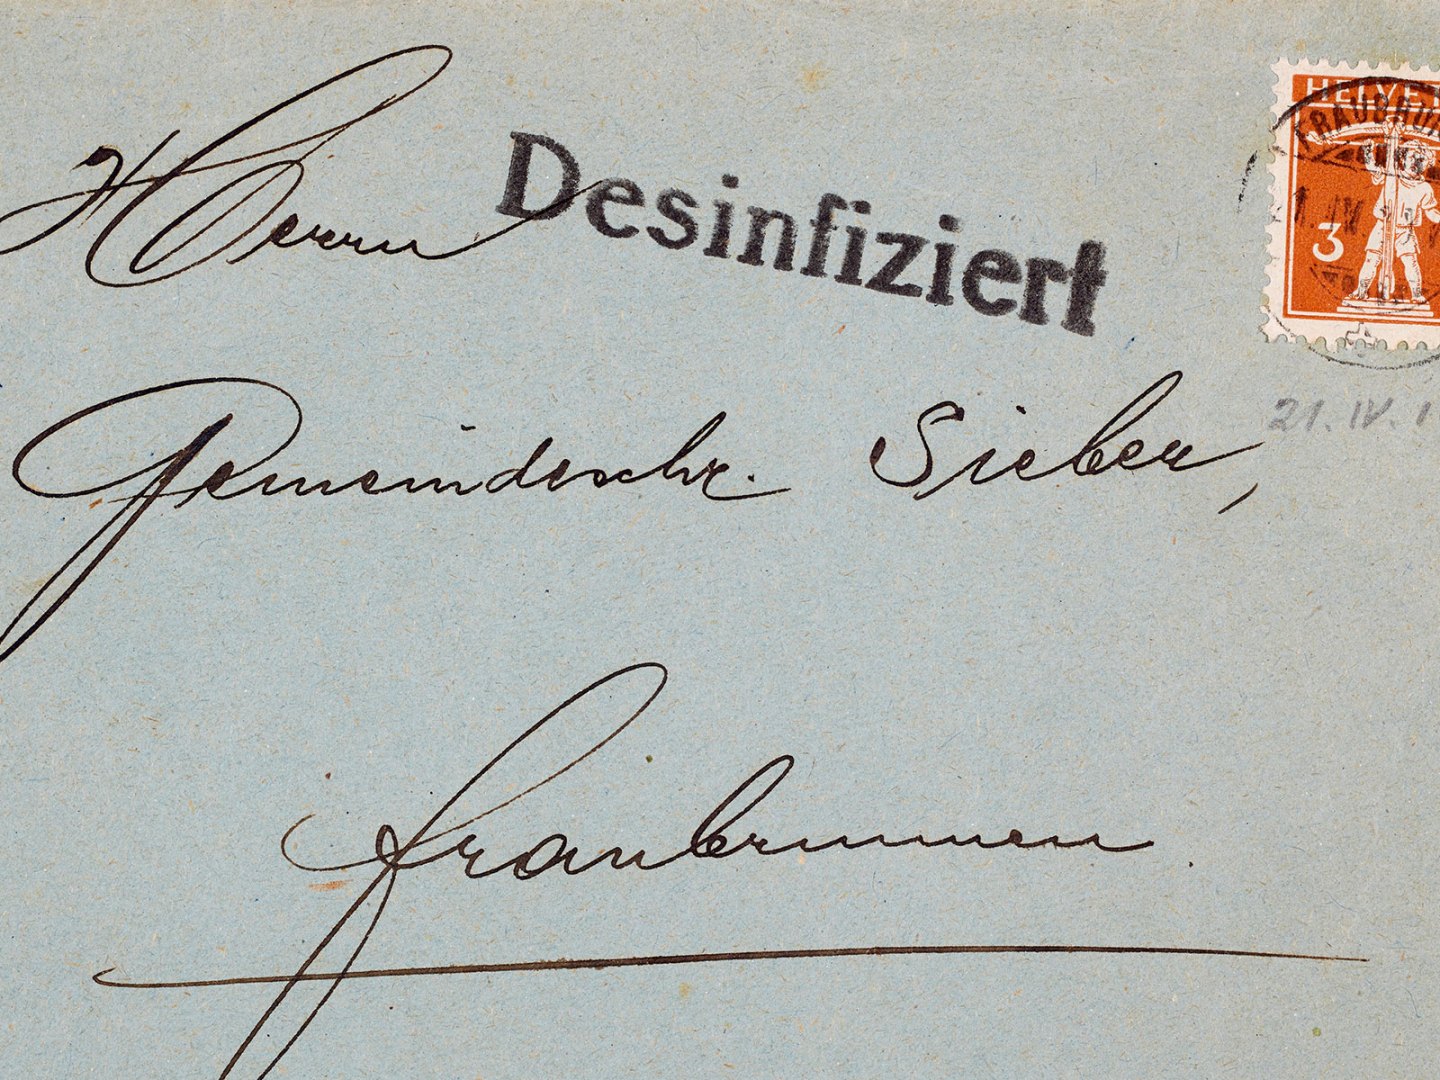 HELVET
FRAUBRUN
3
Desinfiziert
Herrn
21. IV. 1
Gemeindeschr. Sieber,
Fraubrunnen